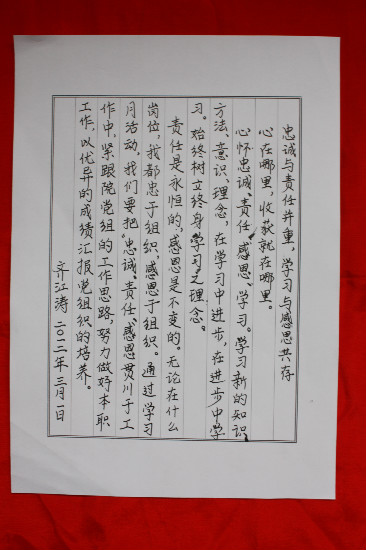 忠诚与责任并重，学习与感恩共存
心在哪里，收获就在哪里。
心怀忠诚、责任、感恩、学习。学习新的知识、
方法、意识、理念，在学习中进步，在进步中学
习。始终树立终身学习之理念。
责任是永恒的，感恩是不变的。无论在什么
岗位，我都忠于组织，感恩于组织。通过学习
月活动，我们要把“忠诚、责任、感恩贯川于工
作中，紧跟院党组的工作思路，努力做好本职
工作，以优异的成绩汇报党组织的培养。
齐江涛
二〇一二年三月一日